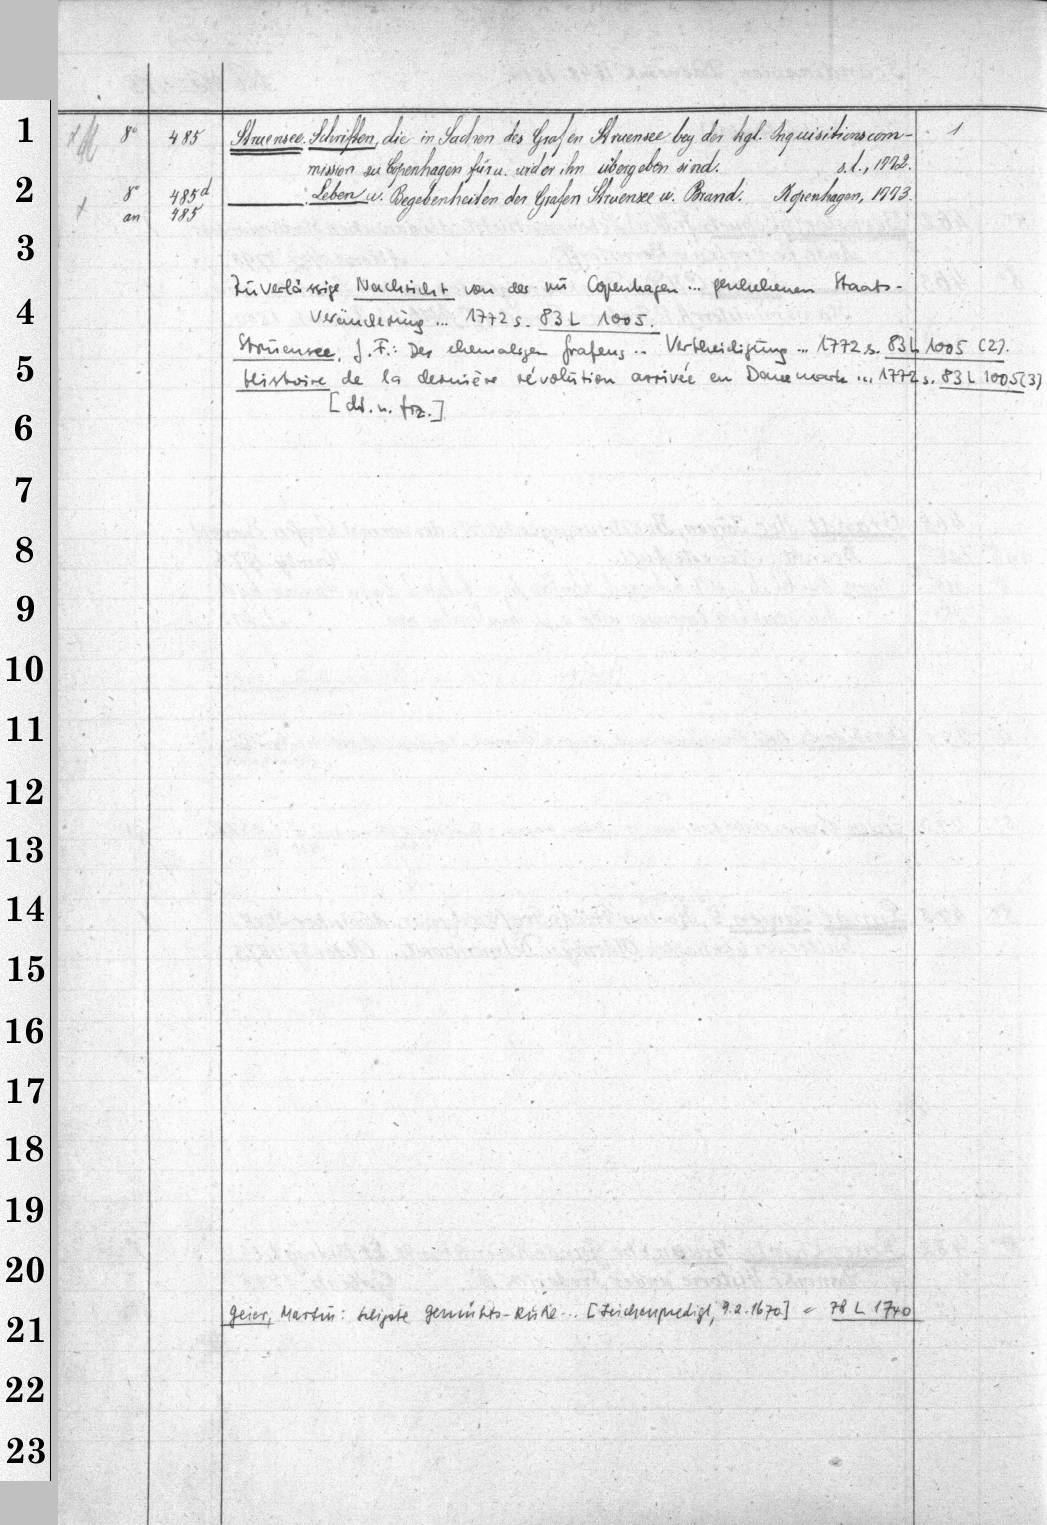 8° 485 Struensee. Schriften, die in Sachen des Grafen Struensee bey der kgl. Inquisitionscom- 1
mission zu Copenhagen für u. wider ihn übergeben sind. s.l., 1772.
8° 485d ______. Leben u. Begebenheiten der Grafen Struensee u. Brand. Kopenhagen, 1773.
an 485
Zuverlässige Nachricht von der zu Copenhagen ... geschehenen Staats-
veränderung ... 1772 s. 83 L 1005.
Struensee, J. F.: Des ehemaligen Grafens ... Vertheidigung ... 1772 s. 83 L 1005 (2).
Histoire de la dernière révolution arrivée en Danemark ... 1772 s. 83 L 1005(3)
[dt. u. frz.]
Geier, Martin: Seligste Gemüths-Ruhe ... [Leichenpredigt, 9.2.1670] = 78 L 1740
1
2
3
4
5
6
7
8
9
10
11
12
13
14
15
16
17
18
19
20
21
22
23